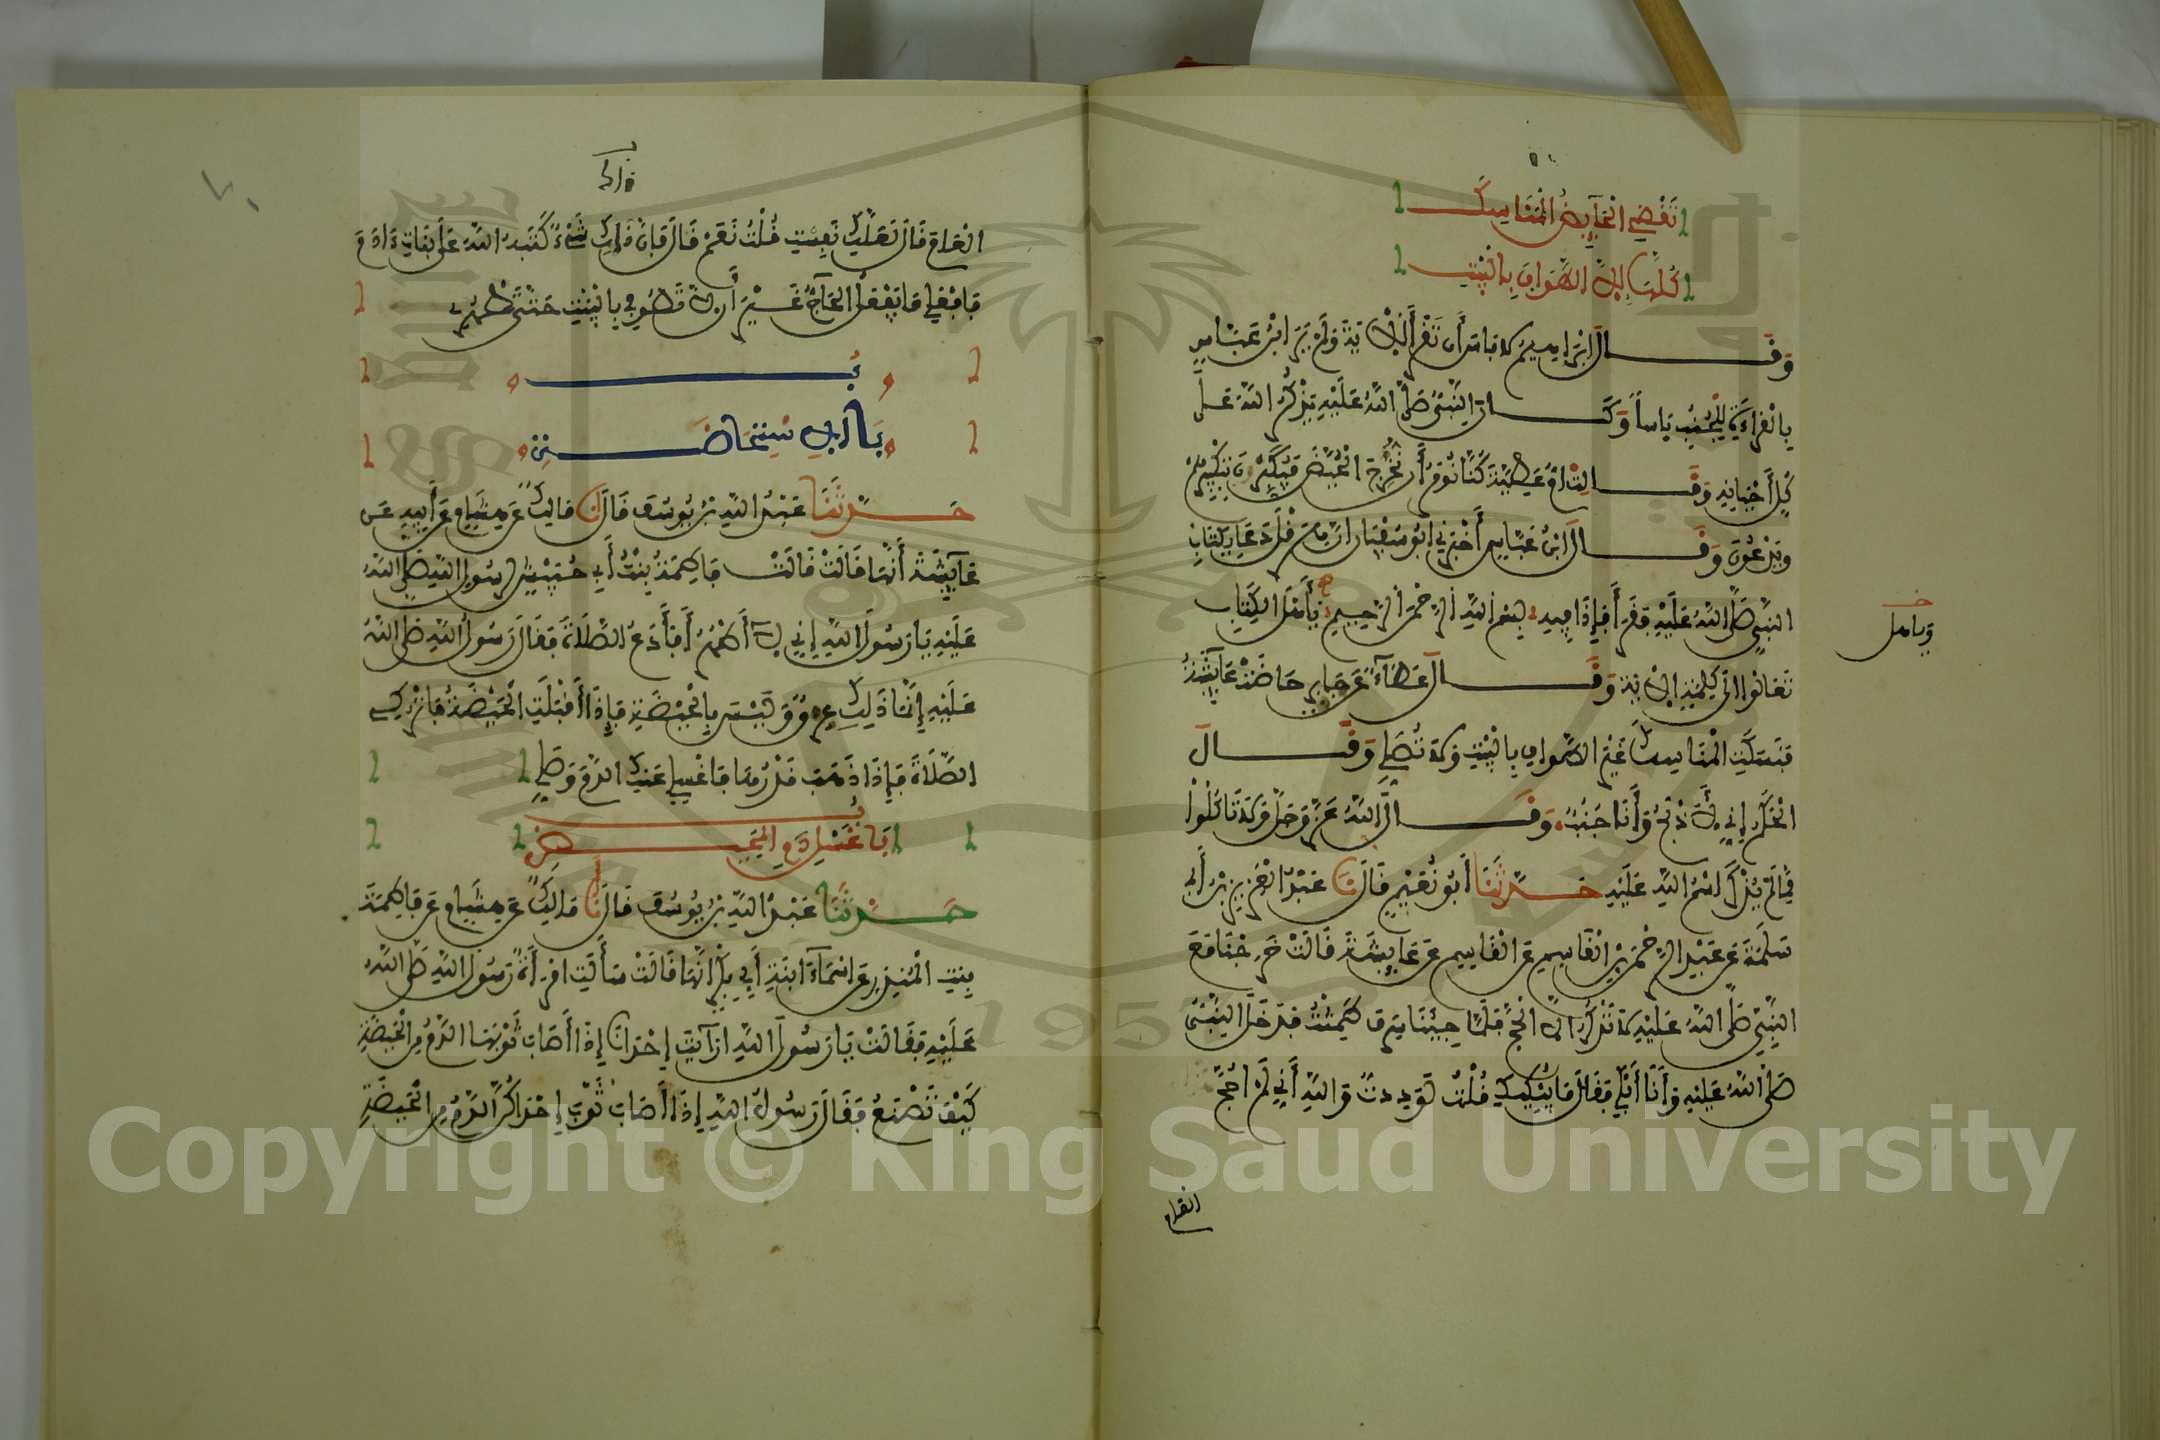 تَقْضِي الْحَآيِضُ الْمَنَاسِكَ
كُلَّهَا إِلَّا الطَّوَافَ بِالْبَيْتِ
وَقَالَ إِبْرَاهِيمُ لَا بَاسَ أَن تَقْرَأَ الْآيَةَ وَلَمْ يَرَ ابْنُ عَبَّاسٍ
بِالْقِرَاءَةِ لِلْجُنُبِ بَاساً وَكَانَ النَّبِيُّ صَلَّى اللَّهُ عَلَيْهِ يَذْكُرُ اللَّهَ عَلَى
كُلِّ أَحْيَانِهِ وَقَالَتْ أُمُّ عَطِيَّةَ كُنَّا نُومَرُ أَن نُخْرِجَ الْحُيَّضَ فَيُكَبِّرْنَ بِتَكْبِيرِهِمْ
وَيَدْعُونَ وَقَالَ ابْنُ عَبَّاسٍ أَخْبَرَنِي أَبُو سُفْيَان أَنَّ هِرَقْلَ دَعَا بِكِتَابِ
النَّبِيِّ صَلَّى اللَّهُ عَلَيْهِ فَقَرَأَ فَإِذَا فِيهِ بِسْمِ اللَّهِ الرَّحْمَنِ الرَّحِيمِ يَأَهْلَ الْكِتَابِ
وياهل
تَعَالَوْا إِلَى كَلِمَةٍ الْآيَةَ وَقَالَ عَطَآءٌ عَن جَابِرٍ حَاضَتْ عَايِشَةُ
فَنَسَكَتِ الْمَنَاسِكَ غَيْرَ الطَّوَافِ بِالْبَيْتِ وَلَا تُصَلِّي وَقَالَ
الْحَكَمُ إِنِّي لَأَذْبَحُ وَأَنَا جُنُبٌ وَقَالَ اللَّهُ عَزَّ وَجَلَّ وَلَا تَاكُلُوا
مِمَّا لَمْ يُذْكَرِ اسْمُ اللَّهِ عَلَيْهِ حَدَّثَنَا أَبُو نُعَيْمٍ قَالَ نَا عَبْدُ الْعَزِيزِ بْنُ أَبِي
سَلَمَةَ عَن عَبْدِ الرَّحْمَنِ بْنِ الْقَاسِمِ عَنِ الْقَاسِمِ عَن عَايِشَةَ قَالَتْ خَرَجْنَا مَعَ
النَّبِيِّ صَلَّى اللَّهُ عَلَيْهِ لَا نَذْكُرُ إِلَّا الْحَجَّ فَلَمَّا جِيْنَا سَرِفَ طَمِثْتُ فَدَخَلَ النَّبِيُّ
صَلَّى اللَّهُ عَلَيْهِ وَأَنَا أَبْكِي فَقَالَ مَا يُبْكِيكِ قُلْتُ لَوَدِدتُّ وَاللَّهِ أَنِّي لَمْ أَحُجَّ
العام
الْعَامَ قَالَ لَعَلَّكِ نَفِسْتِ قُلْتُ نَعَمْ قَالَ فَإِنَّ ذَلِكِ شَيْءٌ كَتَبَهُ اللَّهُ عَلَى بَنَاتِ ءَادَمَ
فَافْعَلِي مَا يَفْعَلُ الْحَآجُّ غَيْرَ أَن لَّا تَطُوفِي بِالْبَيْتِ حَتَّى تَطْهُرِي
بَابُ الِاسْتِحَاضَةِ
حَدَّثَنَا عَبْدُ اللَّهِ بْنُ يُوسُفَ قَالَ نَا مَالِكٌ عَن هِشَامٍ عَن أَبِيهِ عَن
عَايِشَةَ أَنَّهَا قَالَتْ قَالَتْ فَاطِمَةُ بِنْتُ أَبِي حُبَيْشٍ لِرَسُولِ اللَّهِ صَلَّى اللَّهُ
عَلَيْهِ يَا رَسُولَ اللَّهِ إِنِّي لَا أَطْهُرُ أَفَأَدَعُ الصَّلَاةَ فَقَالَ رَسُولُ اللَّهِ صَلَّى اللَّهُ
عَلَيْهِ إِنَّمَا ذَلِكِ عِرْقٌ وَلَيْسَ بِالْحَيْضَةِ فَإِذَا أَقْبَلَتِ الْحَيْضَةُ فَاتْرُكِي
الصَّلَاةَ فَإِذَا ذَهَبَ قَدْرُهَا فَاغْسِلِي عَنكِ الدَّمَ وَصَلِّي
بَابُ غَسْلِ دَمِ الْحَيْضَةِ
حَدَّثَنَا عَبْدُ اللَّهِ بْنُ يُوسُفَ قَالَ نَا مَالِكٌ عَن هِشَامٍ عَن فَاطِمَةَ
بِنْتِ الْمُنذِرِ عَن أَسْمَآءَ ابْنَةِ أَبِي بَكْرٍ أَنَّهَا قَالَتْ سَأَلَتِ امْرَأَةٌ رَسُولَ اللَّهِ صَلَّى اللَّهُ
عَلَيْهِ فَقَالَتْ يَا رَسُولَ اللَّهِ أَرَأَيْتَ إِحْدَانَا إِذَا أَصَابَ ثَوْبَهَا الدَّمُ مِنَ الْحَيْضَةِ
كَيْفَ تَصْنَعُ فَقَالَ رَسُولُ اللَّهِ إِذَا أَصَابَ ثَوْبَ إِحْدَاكُنَّ الدَّمُ مِنَ الْحَيْضَةِ
Copyright © King Saud University
1957